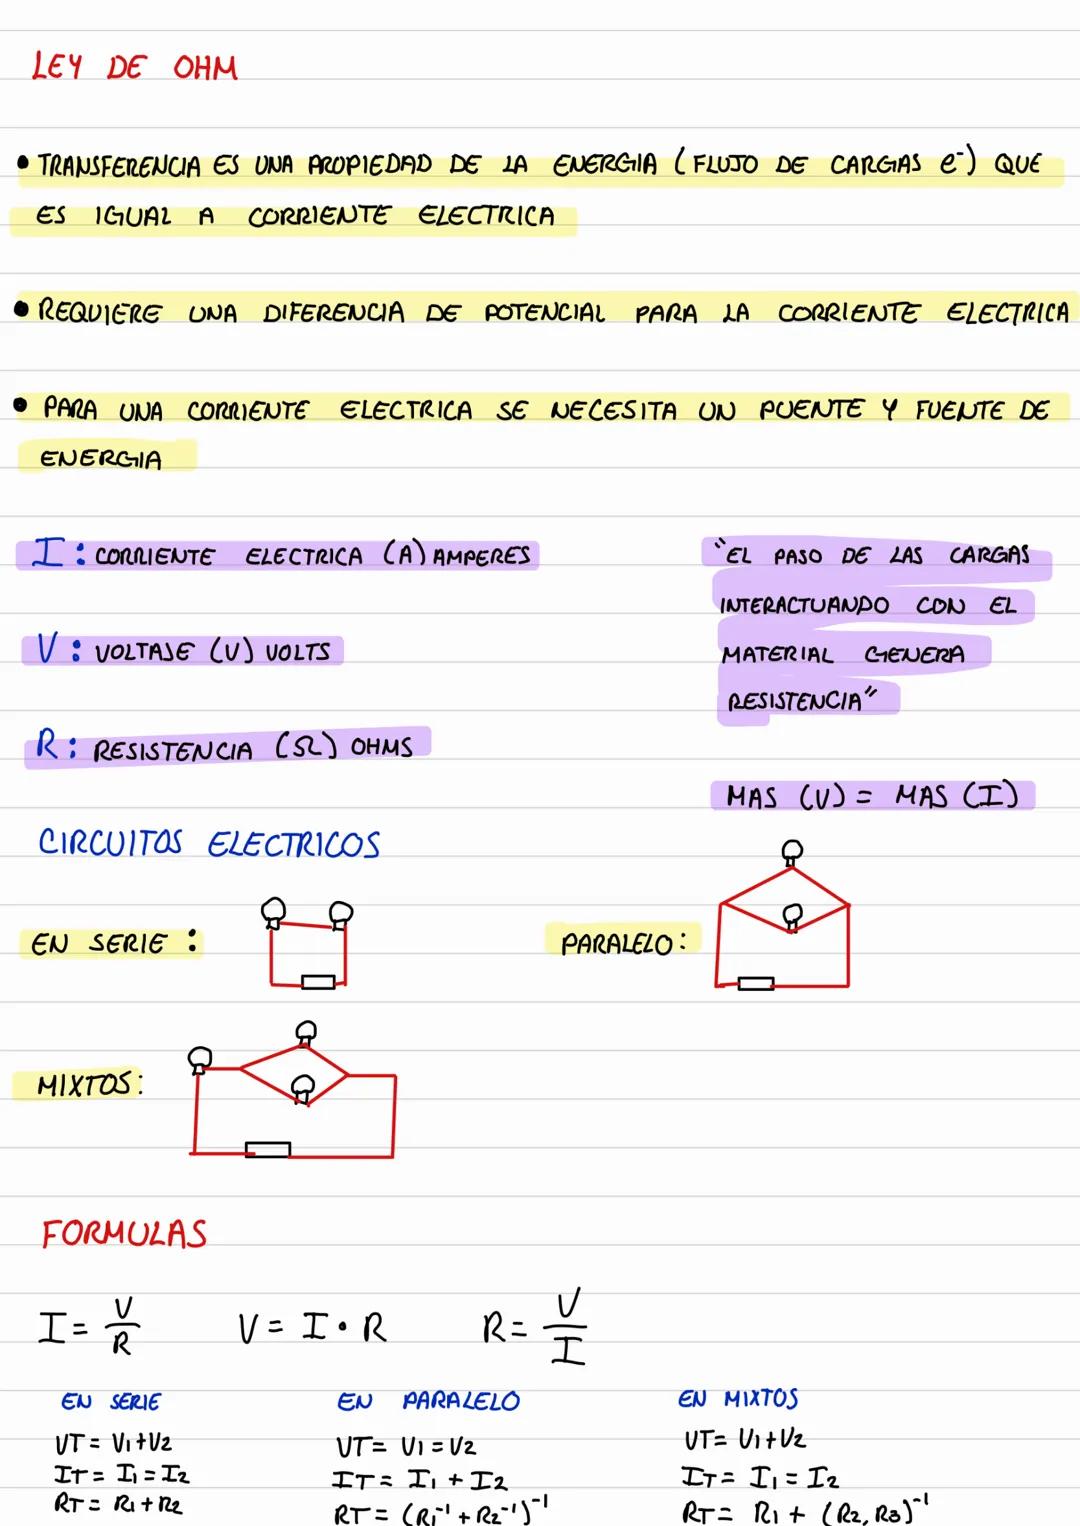 LEY DE OHM
• TRANSFERENCIA ES UNA PROPIEDAD DE LA ENERGIA (FLUJO DE CARGAS e⁻) QUE
ES IGUAL A CORRIENTE ELECTRICA
• REQUIERE UNA DIFERENCIA DE POTENCIAL PARA LA CORRIENTE ELECTRICA
• PARA UNA CORRIENTE ELECTRICA SE NECESITA UN PUENTE Y FUENTE DE
ENERGIA
I: CORRIENTE ELECTRICA (A) AMPERES
V: VOLTAJE (V) VOLTS
R: RESISTENCIA (Ω) OHMS
"EL PASO DE LAS CARGAS
INTERACTUANDO CON EL
MATERIAL GENERA
RESISTENCIA"
MAS (V) = MAS (I)
CIRCUITOS ELECTRICOS
EN SERIE :
PARALELO:
MIXTOS:
FORMULAS
I = V/R
V = I • R
R = V/I
EN SERIE
VT = V1 + V2
IT = I1 = I2
RT = R1 + R2
EN PARALELO
VT = V1 = V2
IT = I1 + I2
RT = (R1⁻¹ + R2⁻¹)⁻¹
EN MIXTOS
VT = V1 + V2
IT = I1 = I2
RT = R1 + (R2, R3)⁻¹